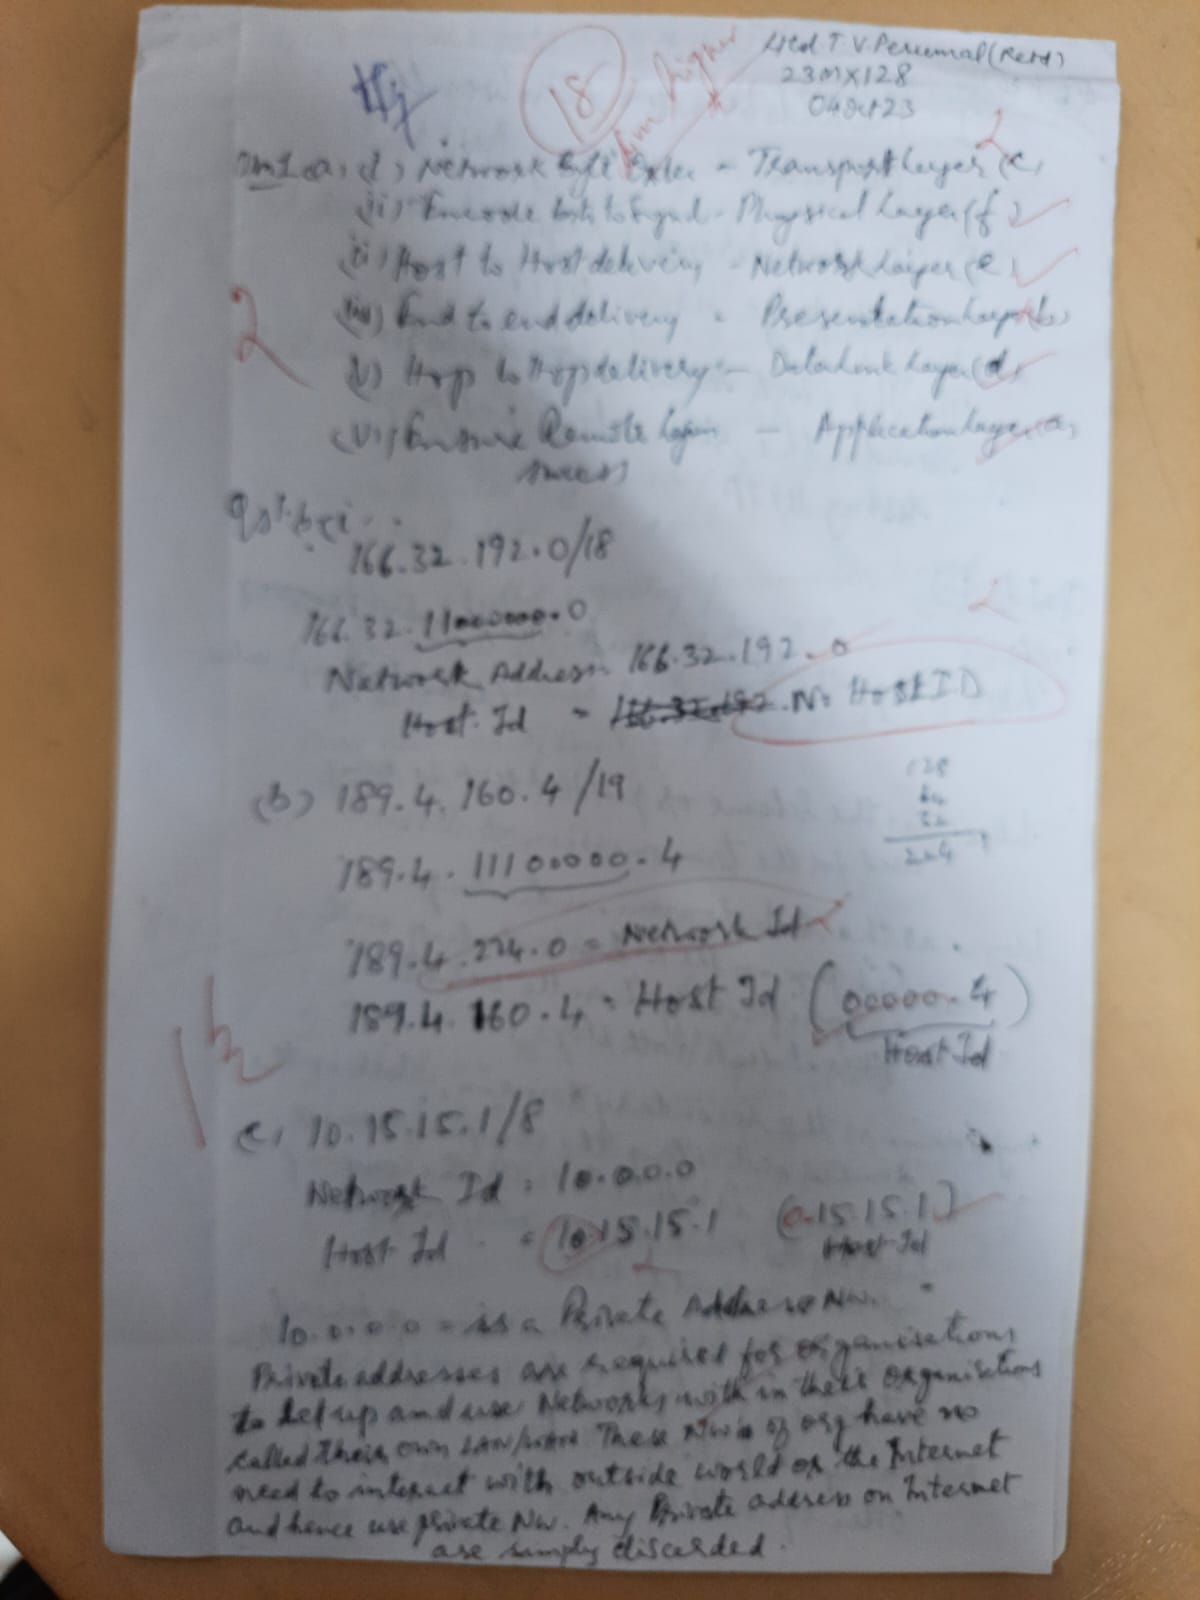 18
higher
T.V. Perumal (Retd)
23MX128
04 Oct 23
2
Network Byte Order - Transport Layer (c)
ii) Encode bits to signal - Physical Layer (f)
Host to Host delivery - Network Layer (e)
End to end delivery - Presentation Layer (b)
2
v) Hop to Hop delivery - Datalink Layer (d)
(vi) Ensure Remote Login - Application Layer (a)
166.32.192.0/18
166.32.11000000.0
2
Network Address 166.32.192.0
Host Id = No Host ID
(b) 189.4.160.4/19
128
64
32
224
189.4.11100000.4
189.4.224.0 = Network Id
189.4.160.4 = Host Id (00000.4)
Host Id
1½
c) 10.15.15.1/8
Network Id = 10.0.0.0
Host Id = 10.15.15.1 (0.15.15.1)
Host Id
10.0.0.0 = is a Private Address Nw.
Private addresses are required for organisations
to set up and use Networks with in their organisations
called their own LAN/WAN These Nw's of org have no
need to interact with outside world or the Internet
and hence use private Nw. Any Private address on Internet
are simply discarded.